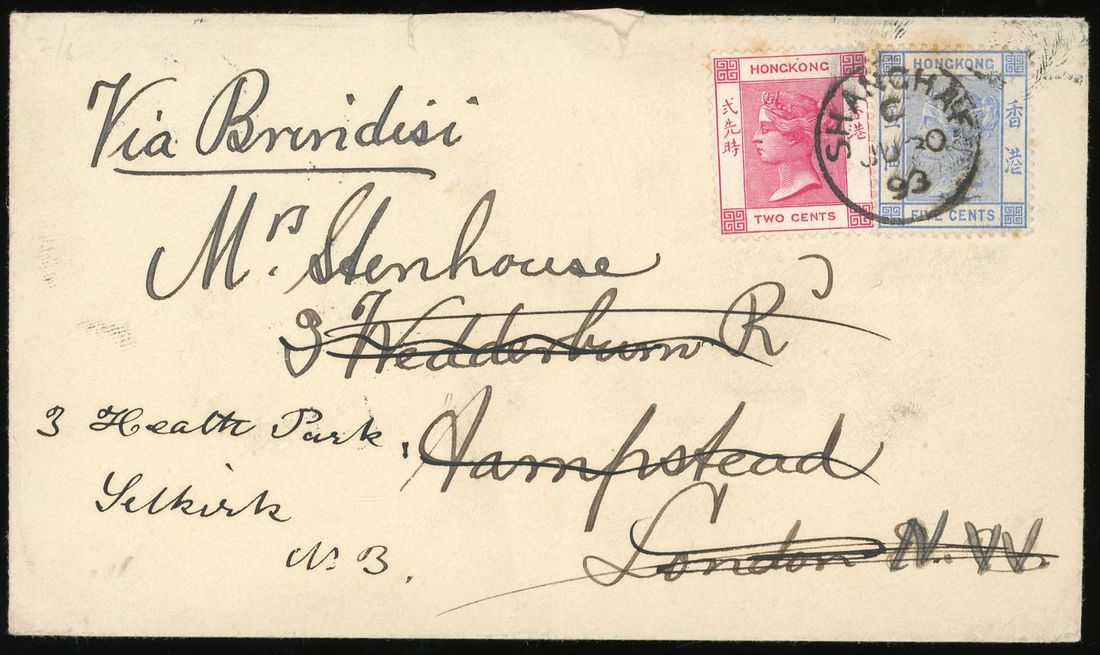 2/6
Via Brindisi
HONGKONG
弍先時
香港
TWO CENTS
HONGKONG
香港
FIVE CENTS
SHANGHAI
C
JU 20
93
Mrs. Stenhouse
3 Wedderburn Rd
Hampstead
London N.W.
3 Heath Park,
Selkirk
N.B.